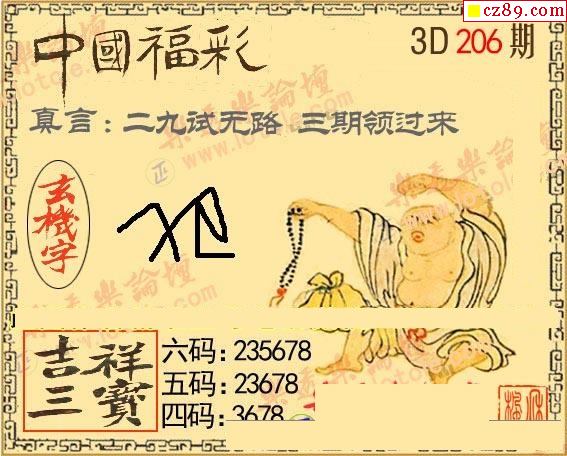 cz89.com
中國福彩
3D 206 期
真言：二九试无路 三期领过来
玄機字
吉祥三寶
六码:235678
五码:23678
四码:3678